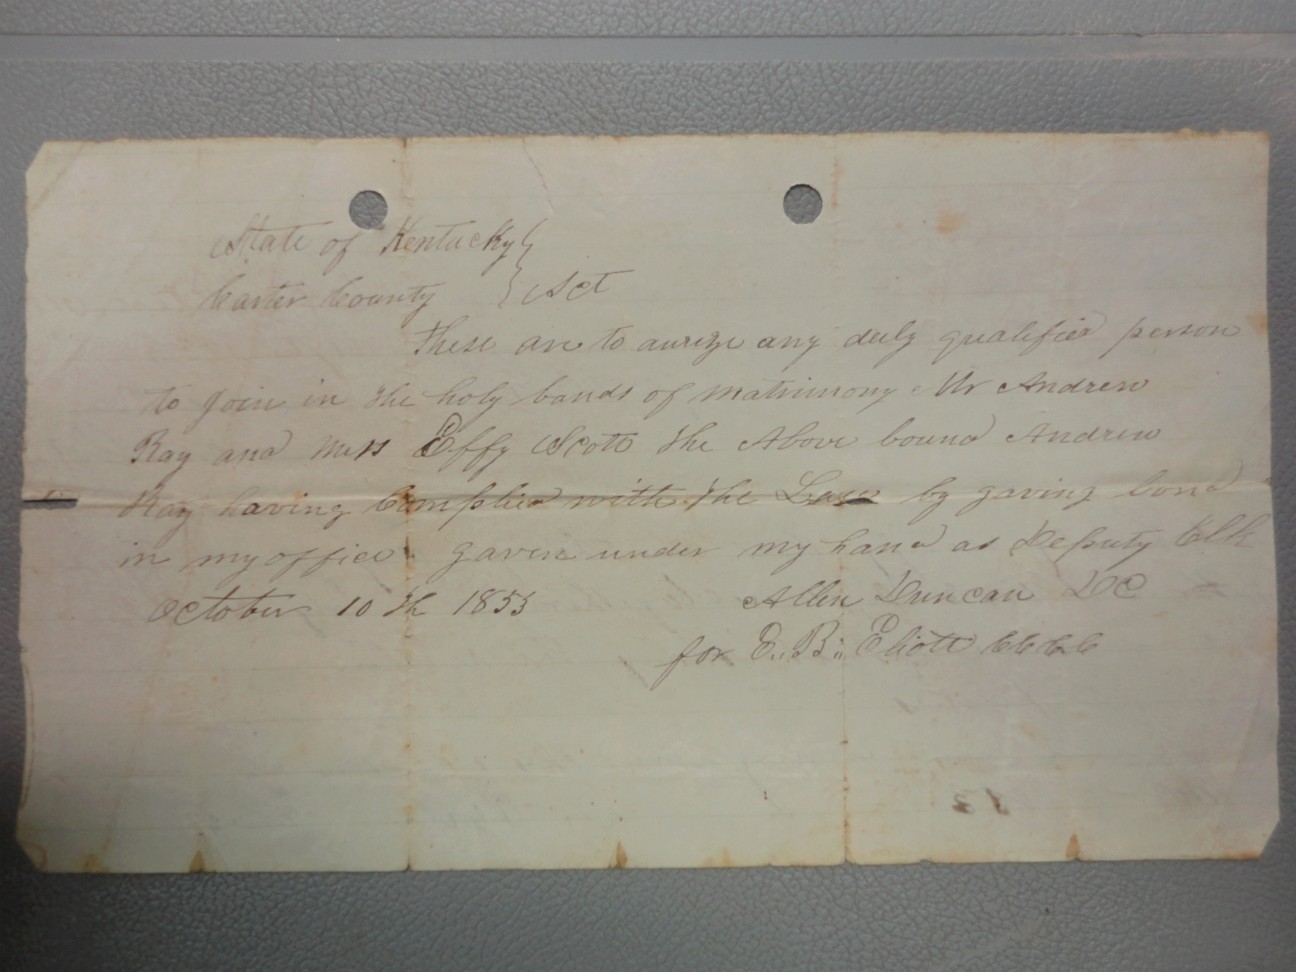 State of Kentucky }
Carter County } Sct
These are to aurize any duly qualified person
to join in the holy bands of matrimony Mr Andrew
Ray and Mrs Effy Scott the Above bound Andrew
Ray having Complied with the Law by gaving bond
in my office gaven under my hand as Deputy Clk
October 10th 1853 Allen Duncan DC
for E. B. Eliott CCCC